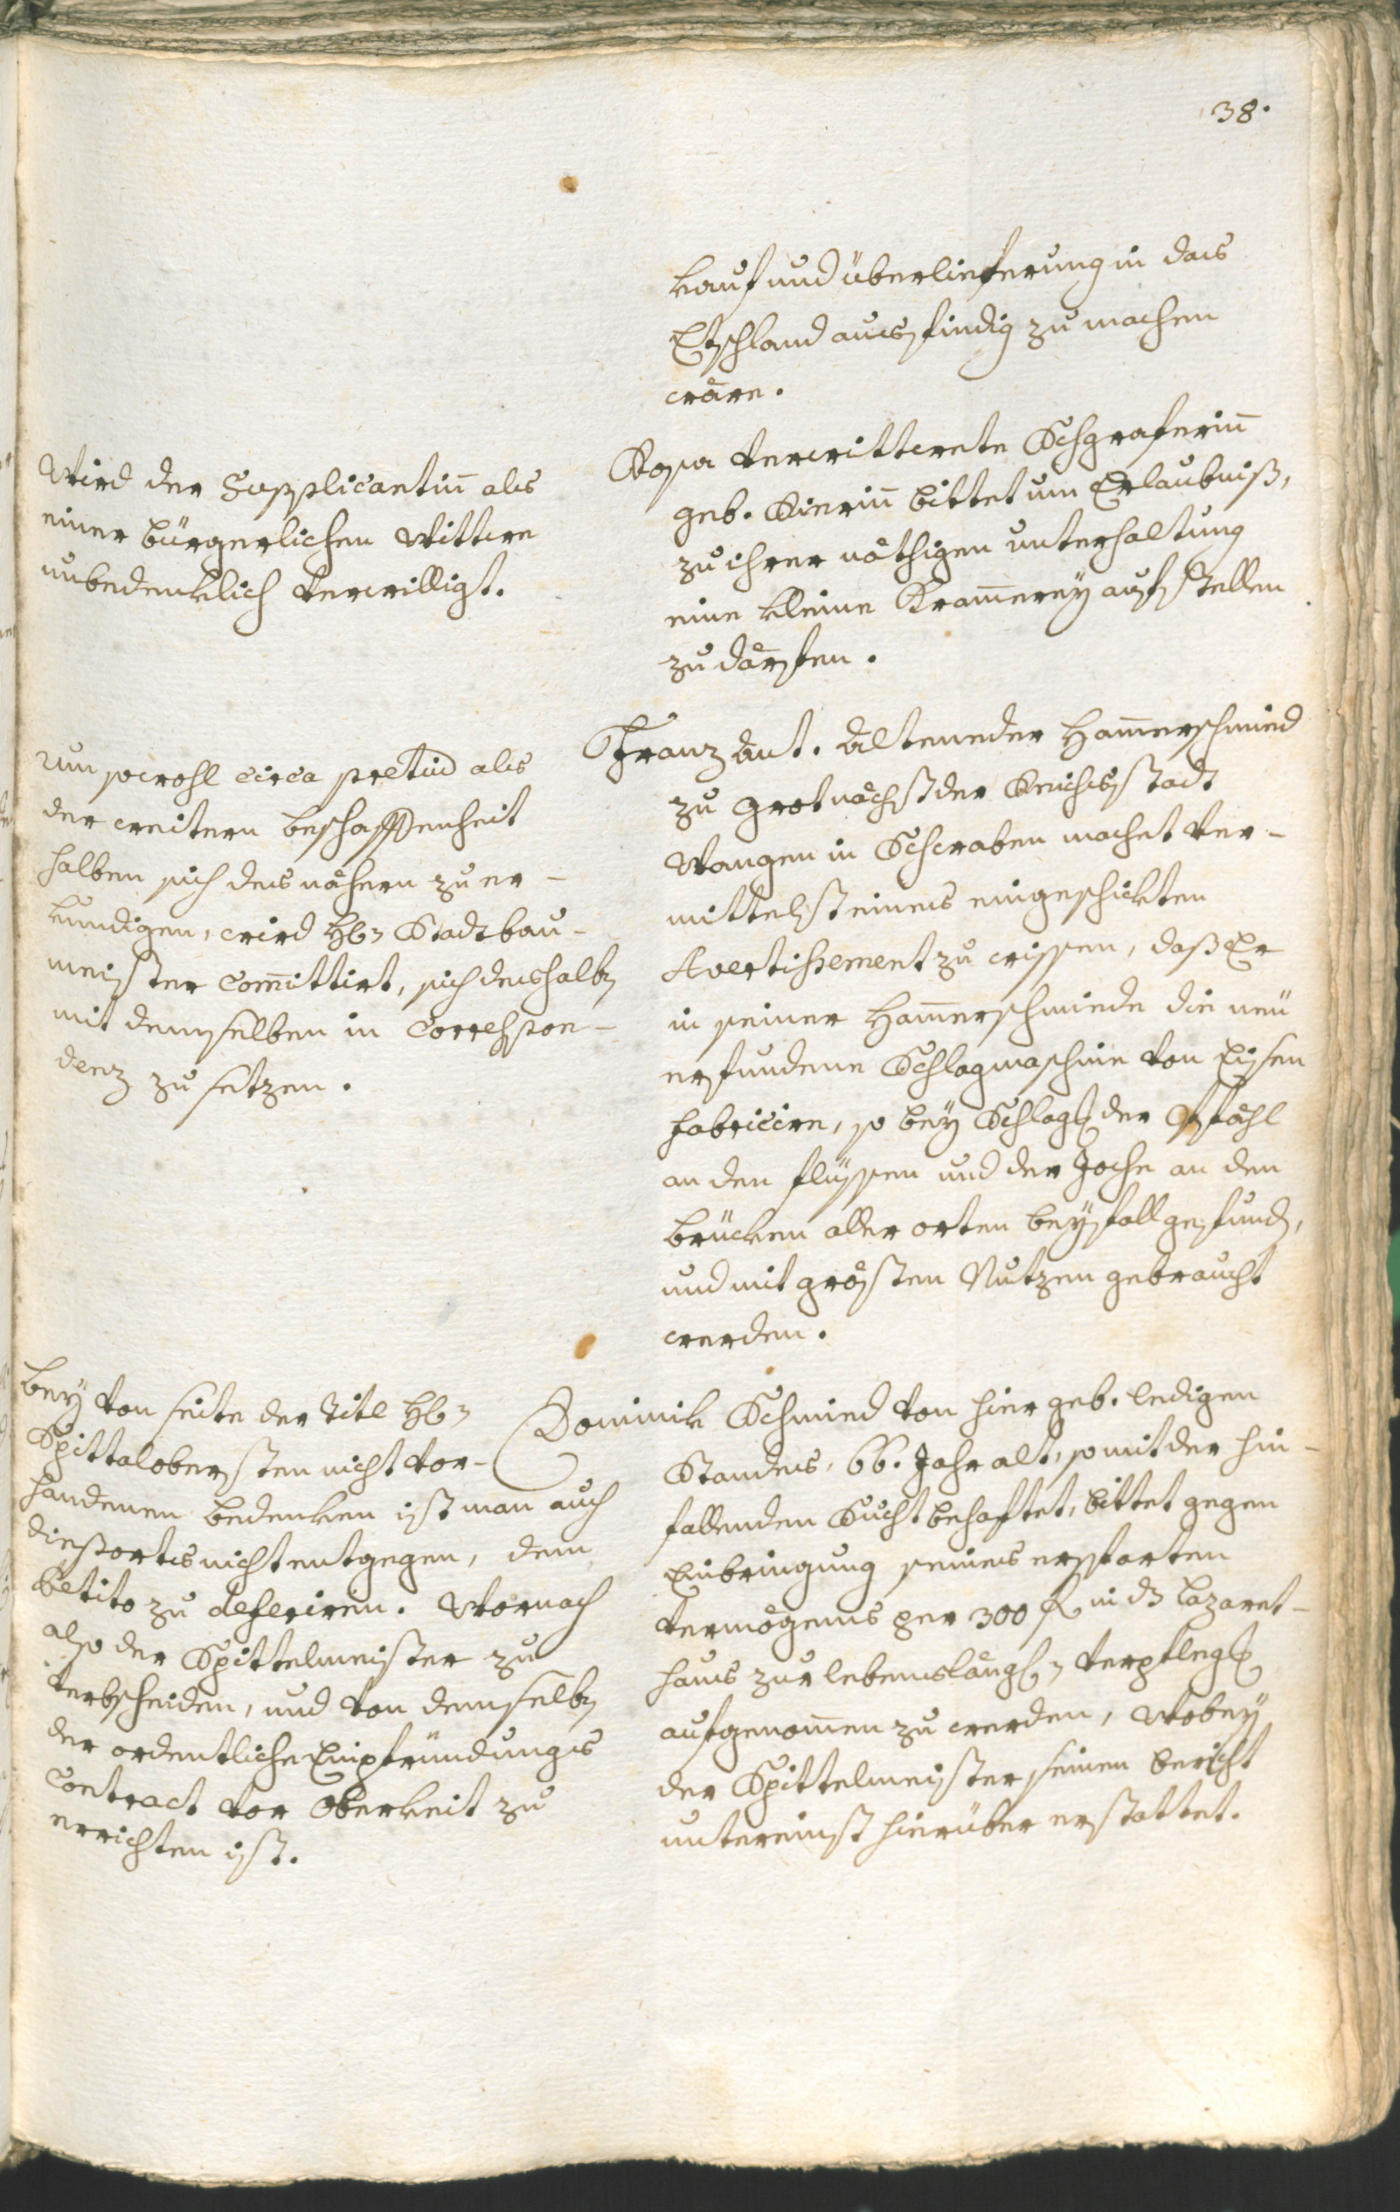 38.
kauf und überlieferung in das
Etschland ausfindig zu machen
wäre.
Wird der Supplicantin̄ als
einer bürgerlichen Wittwe
unbedenklich verwilligt.
Rosa verwittwete Schgraferin̄
geb. Kierin̄ bittet um Erlaubniß,
zu ihrer nöthigen unterhaltung
eine kleine Kram̄erey aufstellen
zu därfen.
Um sowohl circa pretium als
der weitern beschaffenheit
halben sich des nähern zu er-
kundigen, wird H. Stadtbau-
meister com̄ittirt, sich deshalb
mit demselben in Correspon-
denz zu setzen.
Franz Ant. Alteneder Ham̄erschmied
zu Grot nächst der Reichsstadt
Wangen in Schwaben machet ver-
mittelst eines eingeschickten
Avertissement zu wissen, daß Er
in seiner Ham̄erschmiede die neu
erfundene Schlagmaschine von Eisen
fabricire, so bey Schlag der Pfähl
an den flüssen und der Joche an den
brücken aller orten beyfall gefund,
und mit grösten Nutzen gebraucht
werden.
Bey von seite der Titl H.
Spittalobersten nicht vor-
handenen bedenken ist man auch
diesorts nicht entgegen, dem
Petito zu deferiren. Wornach
also der Spittelmeister zu
verbscheiden, und von demselb
der ordentliche Einpfründungs
Contract vor Oberkeit zu
errichten ist.
Dominik Schmied von hier geb. ledigen
Standes, 66. Jahr alt, so mit der hin-
fallenden Sucht behaftet, bittet gegen
Einbringung seines ersparten
vermögens per 300 f in ds Lazaret-
haus zur lebenslängl. verpfleg
aufgenom̄en zu werden, Wobey
der Spittelmeister seinen bericht
untereinst hierüber erstattet.